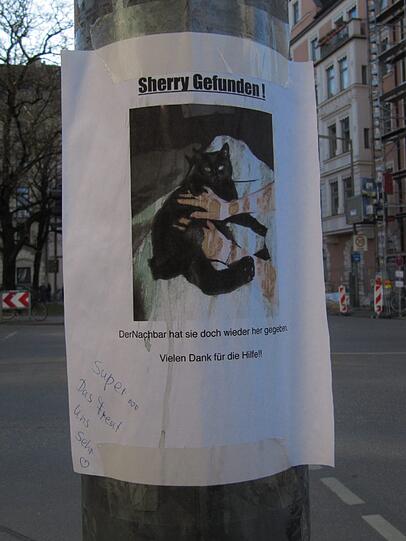 Sherry Gefunden !
DerNachbar hat sie doch wieder her gegeben.
Vielen Dank für die Hilfe!!
Super...
Das freut
uns
sehr